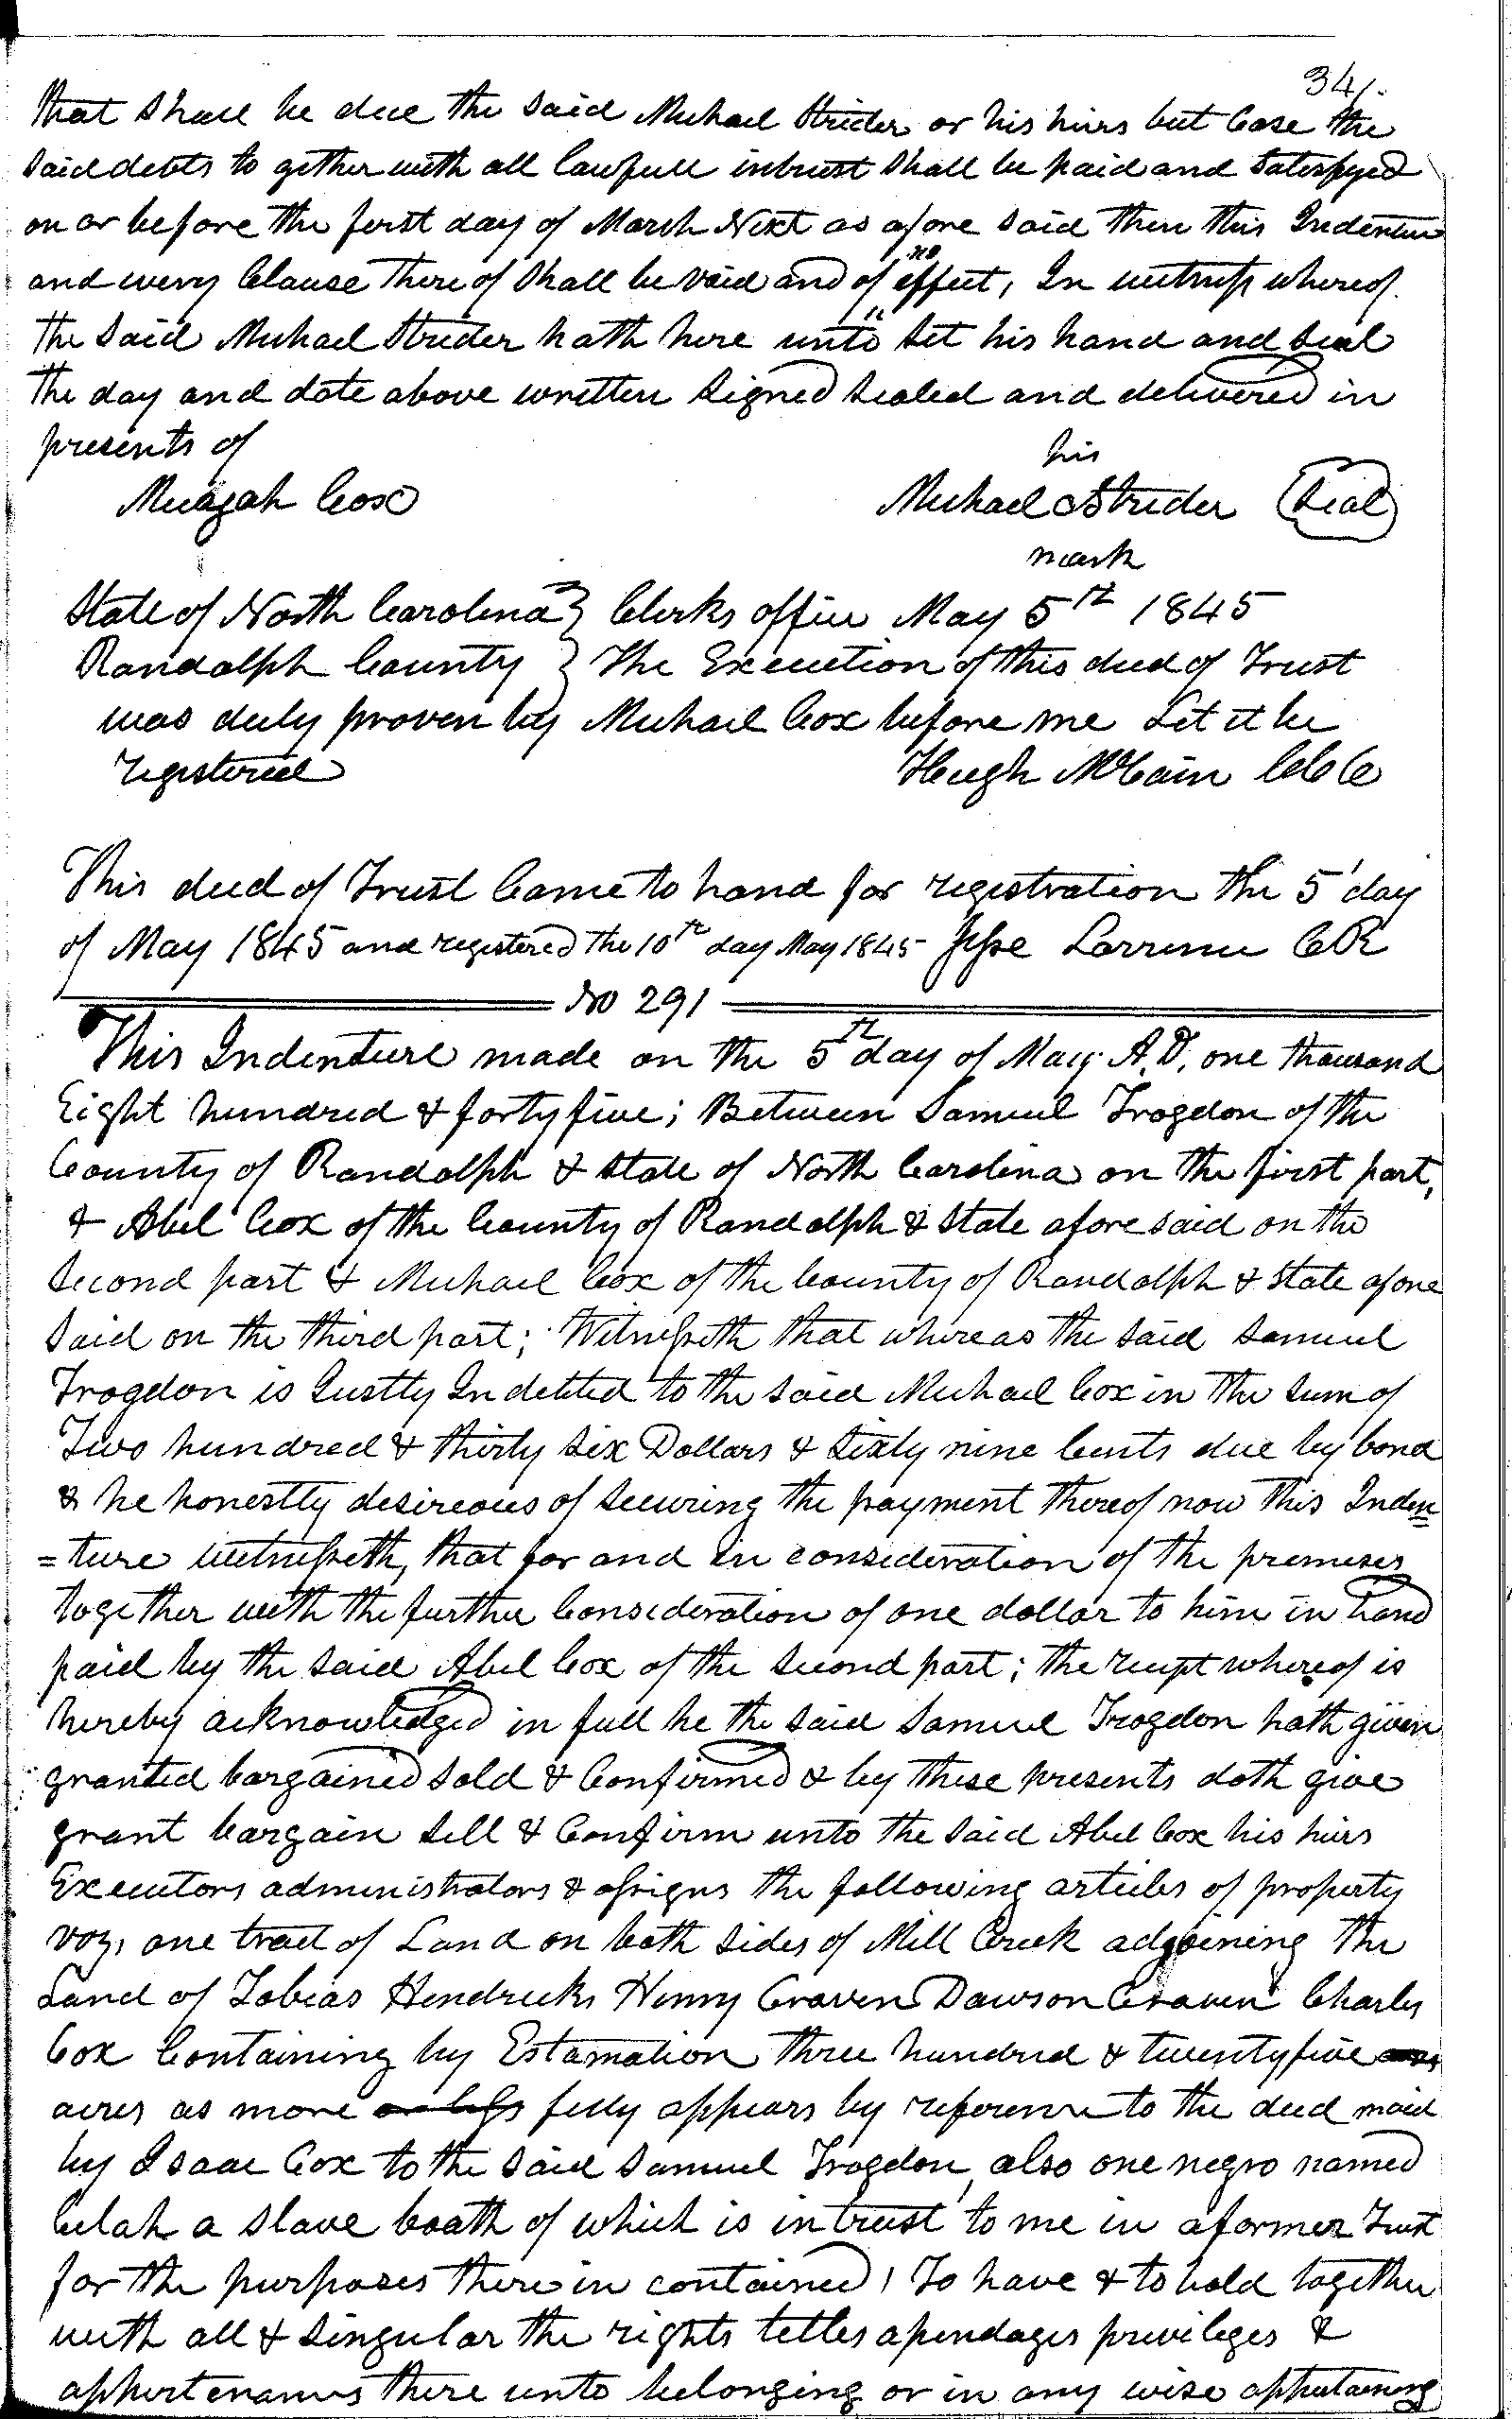 341.
that shall be due the said Michael Strider or his hiirs but Case the
said debts to gether with all lawfull intrest shall be paid and satesfyed
on or before the first day of March Next as afore said then this Indenture
and every Clause there of shall be void and of no effect, In witness whereof
the said Michael Strider hath here unto set his hand and seal
the day and date above written Signed sealed and delivered in
presents of
his
Micagah Cox Michael Strider (Seal)
mark
State of North Carolina } Clerks office May 5th 1845
Randolph County } The Execution of this deed of Trust
was duly proven by Michael Cox before me Let it be
registered Hugh McCain CCC
This deed of Trust Came to hand for registration the 5 day
of May 1845 and registered the 10th day May 1845 Jesse Larrimu CR
No 291
This Indenture made on the 5th day of May A.D. one thousand
Eight hundred & forty five; Between Samuel Trogdon of the
County of Randolph & State of North Carolina on the first part,
& Abel Cox of the County of Randolph & State afore said on the
Second part & Michael Cox of the County of Randolph & State afore
said on the third part; Witnesseth that whereas the said Samuel
Trogdon is Justly Indebted to the said Michael Cox in the sum of
Two hundred & thirty six Dollars & sixty nine Cents due by bond
& he honestly desireous of securing the payment thereof now this Inden
=ture witnesseth, that for and in consideration of the premises
together with the further Consideration of one dollar to him in hand
paid by the said Abel Cox of the second part; the recipt whereof is
hereby acknowledged in full he the said Samuel Trogdon hath given
granted bargained sold & Confirmed & by these presents doth give
grant bargain sell & Confirm unto the said Abel Cox his hiirs
Executors administrators & assigns the following articles of property
voz, one tract of Land on both sides of Mill Creek adjoining the
Land of Tobias Hendricks Henry Craven Dawson Craven & Charles
Cox Containing by Estamation three hundred & twenty five acres
acres as more or less fully appears by reference to the deed maid
by Isaac Cox to the said Samuel Trogdon, also one negro named
Culah a slave boath of which is in trust to me in a former Trust
for the purposes there in contained, To have & to hold together
with all & singular the rights tetles apendages privileges &
appurtenanus there unto belonging or in any wise appertaining